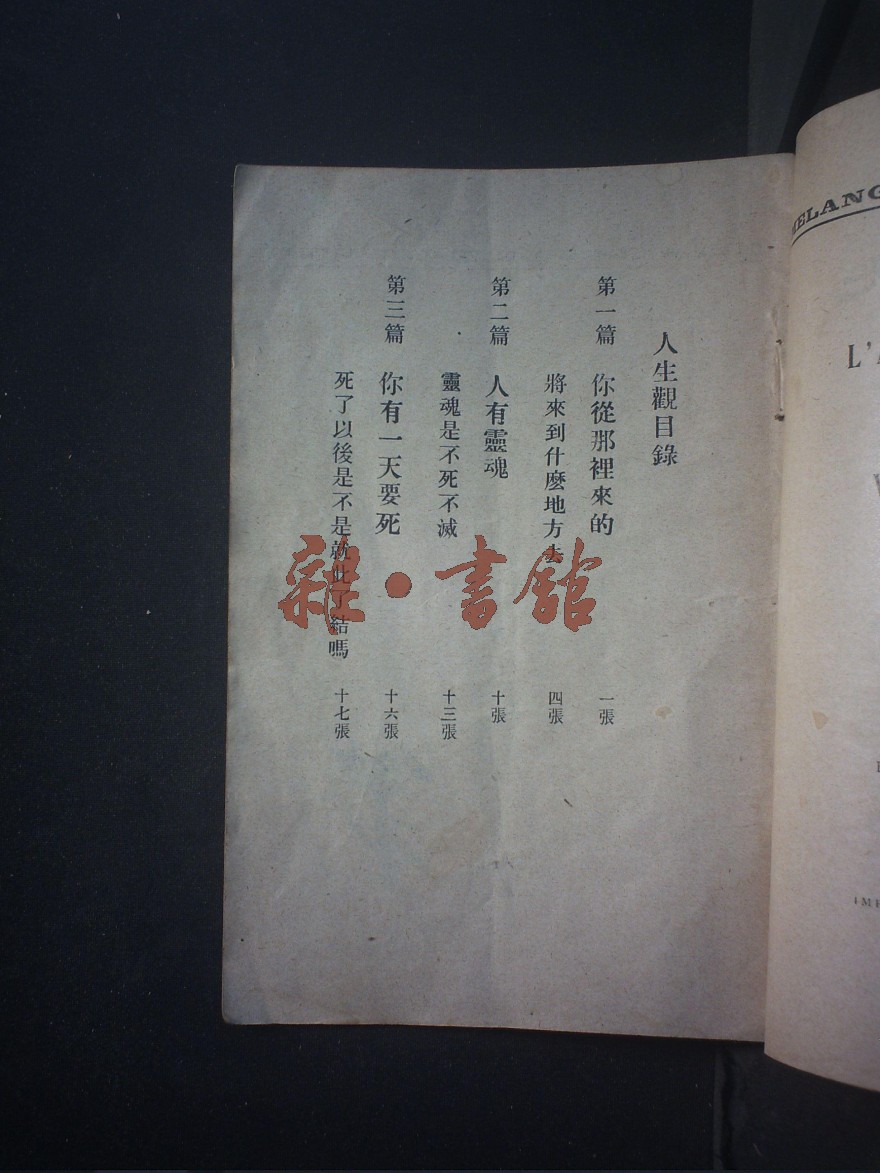 人生觀目錄
第一篇 你從那裡來的 一張
將來到什麼地方去 四張
第二篇 人有靈魂 十張
靈魂是不死不滅 十三張
第三篇 你有一天要死 十六張
死了以後是不是就此了結嗎 十七張
雜·書館
MELANG
L'A
IMP